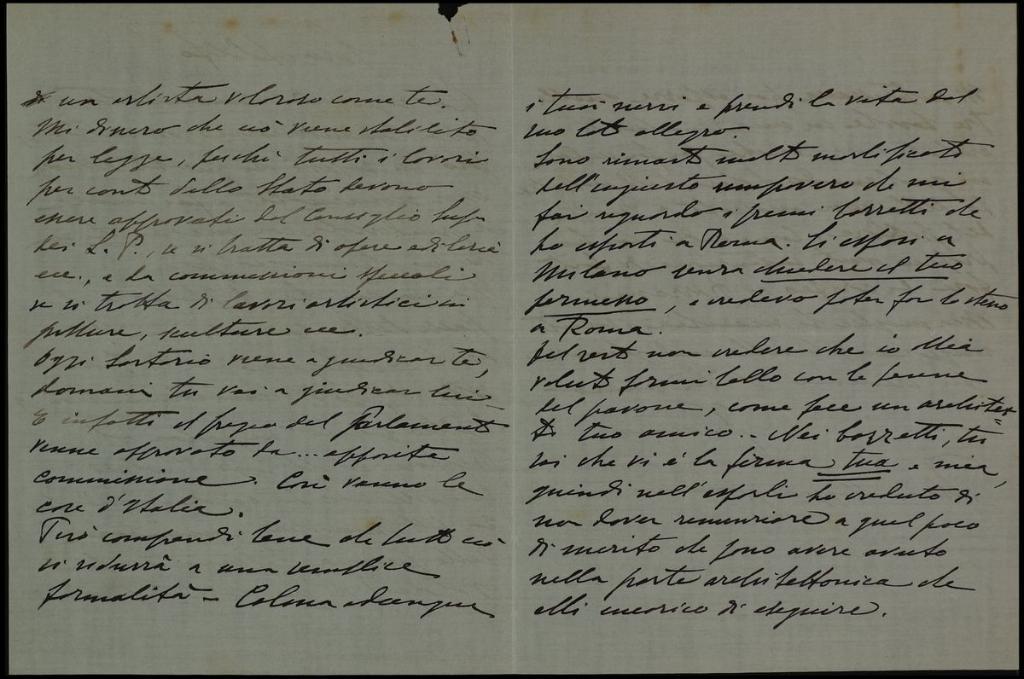 di un artista valoroso come te.
Mi dicono che ciò viene stabilito
per legge, perchè tutti i lavori
per conto dello Stato devono
essere approvati dal Consiglio Sup.
dei L. P., se si tratta di opere edilizie
ecc., e da commissioni speciali
se si tratta di lavori artistici in
pitture, sculture ecc.
Oggi Sartorio viene a giudicar te,
domani tu vai a giudicar lui.
E infatti il fregio del Parlamento
venne approvato da... apposita
commissione. Così vanno le
cose d'Italia.
Tu comprendi bene che tutto ciò
si ridurrà a una semplice
formalità - Calma adunque
i tuoi nervi e prendi la vita dal
suo lato allegro.
Sono rimasto molto mortificato
dell'ingiusto rimprovero che mi
fai riguardo i premi bozzetti che
ho esposti a Roma. Li esposi a
Milano senza chiedere il tuo
permesso, e credevo poter far lo stesso
a Roma.
Del resto non credere che io abbia
voluto farmi bello con le penne
del pavone, come fece un architet-
to tuo amico.. Nei bozzetti, tu
sai che vi è la firma tua e mia,
quindi nell'esporli ho creduto di
non dover rinunziare a quel poco
di merito che posso avere avuto
nella parte architettonica che
ebbi incarico di eseguire.